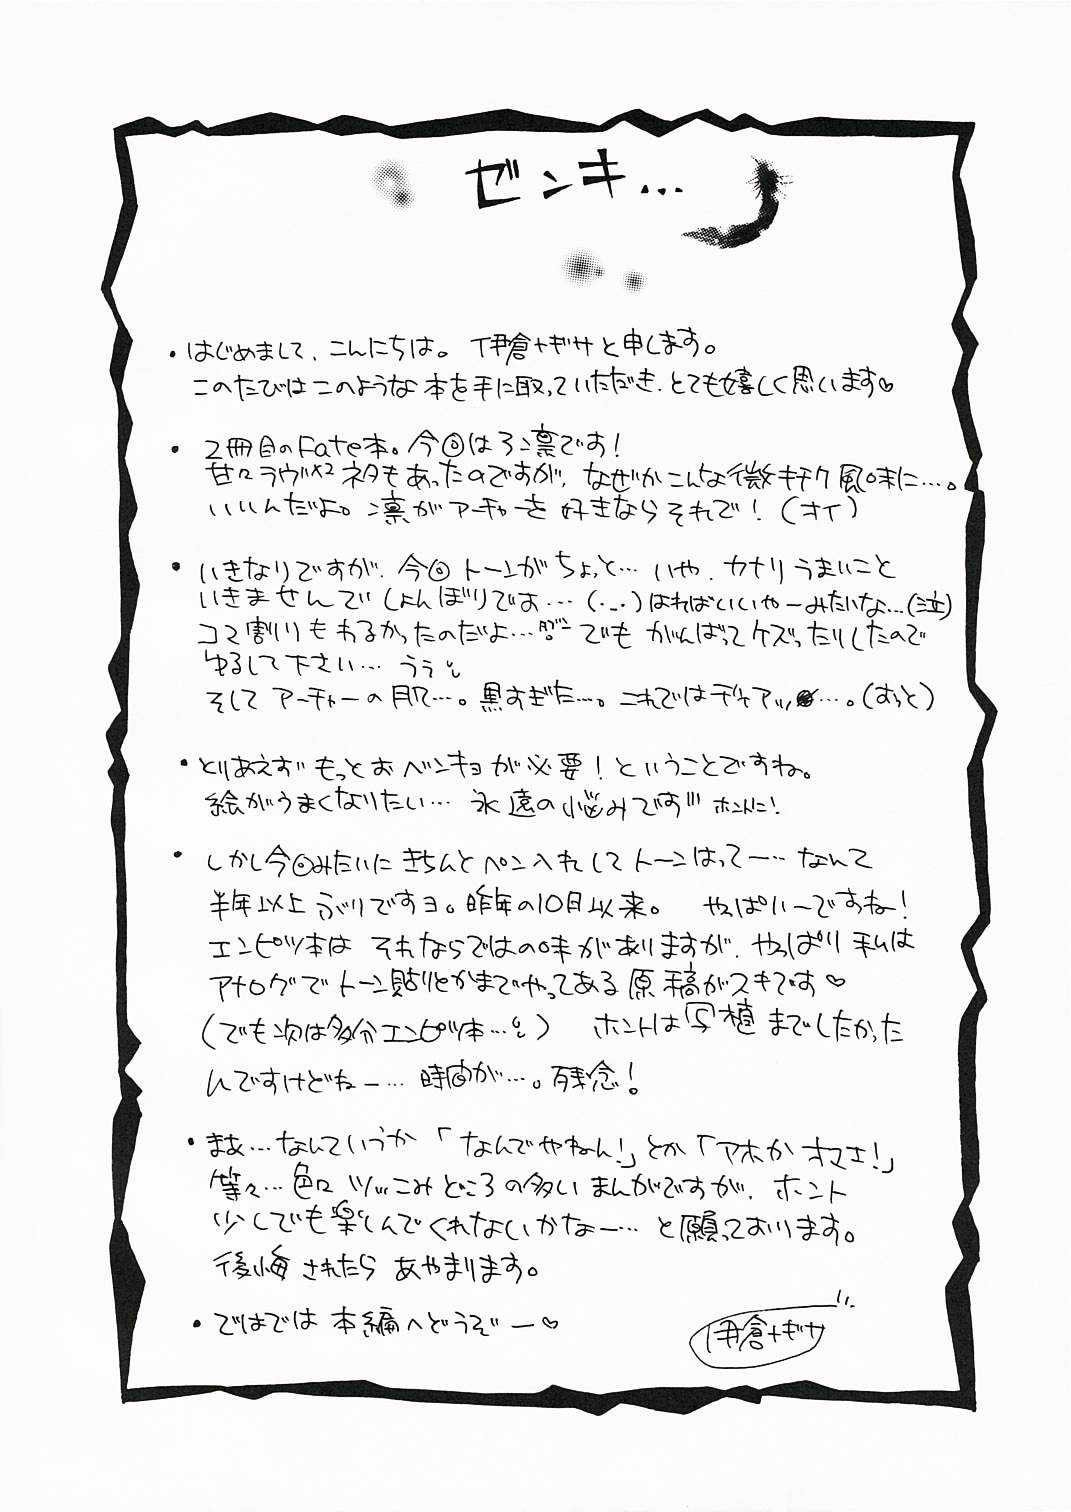 ゼンキ…
・はじめまして、こんにちは。 伊倉ナギサと申します。
このたびはこのような本を手に取っていただき、とても嬉しく思います♡
・2冊目のFate本。今回は弓凛です!
甘々ラヴ×2ネタもあったのですが、なぜかこんな微キチク風味に…。
いいんだよ。凛がアーチャーを好きならそれで!(オイ)
・いきなりですが、今回トーンがちょっと… いや、カナリうまいこと
いきませんでしょんぼりです…(・_・)はればいいやーみたいな…(泣)
コマ割りもわるかったのだよ… でもがんばってケズったりしたので
ゆるして下さい… うぅ
そしてアーチャーの肌…。黒すぎた…。これではディアッ…。(おっと)
・とりあえずもっとおベンキョが必要!ということですね。
絵がうまくなりたい… 永遠の悩みです ホントに!
・しかし今回みたいにきちんとペン入れしてトーンはってー… なんて
半年以上ぶりですヨ。昨年の10月以来。 やっぱいーですね!
エンピツ本はそれならではの味がありますが、やっぱり私は
アナログでトーン貼りとかまでやってある原稿がスキです♡
(でも次は多分エンピツ本…) ホントは写植までしたかった
んですけどねー… 時間が…。残念!
・まあ…なんていうか「なんでやねん!」とか「アホかオマエ!」
等々…色々ツッこみどころの多いまんがですが、ホント
少しでも楽しんでくれないかなー… と願っております。
後悔されたらあやまります。
・ではでは本編へどうぞー♡
伊倉ナギサ